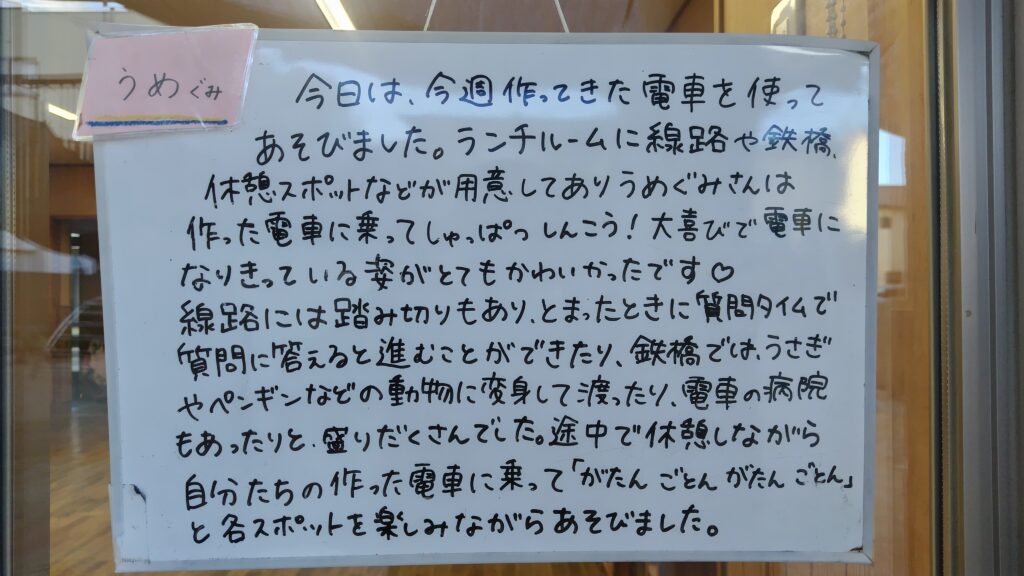 うめぐみ
今日は、今週作ってきた電車を使って
あそびました。ランチルームに線路や鉄橋、
休憩スポットなどが用意してありうめぐみさんは
作った電車に乗ってしゅっぱっしんこう！大喜びで電車に
なりきっている姿がとてもかわいかったです♡
線路には踏み切りもあり、とまったときに質問タイムで
質問に答えると進むことができたり、鉄橋では、うさぎ
やペンギンなどの動物に変身して渡ったり、電車の病院
もあったりと、盛りだくさんでした。途中で休憩しながら
自分たちの作った電車に乗って「がたん ごとん がたん ごとん」
と各スポットを楽しみながらあそびました。